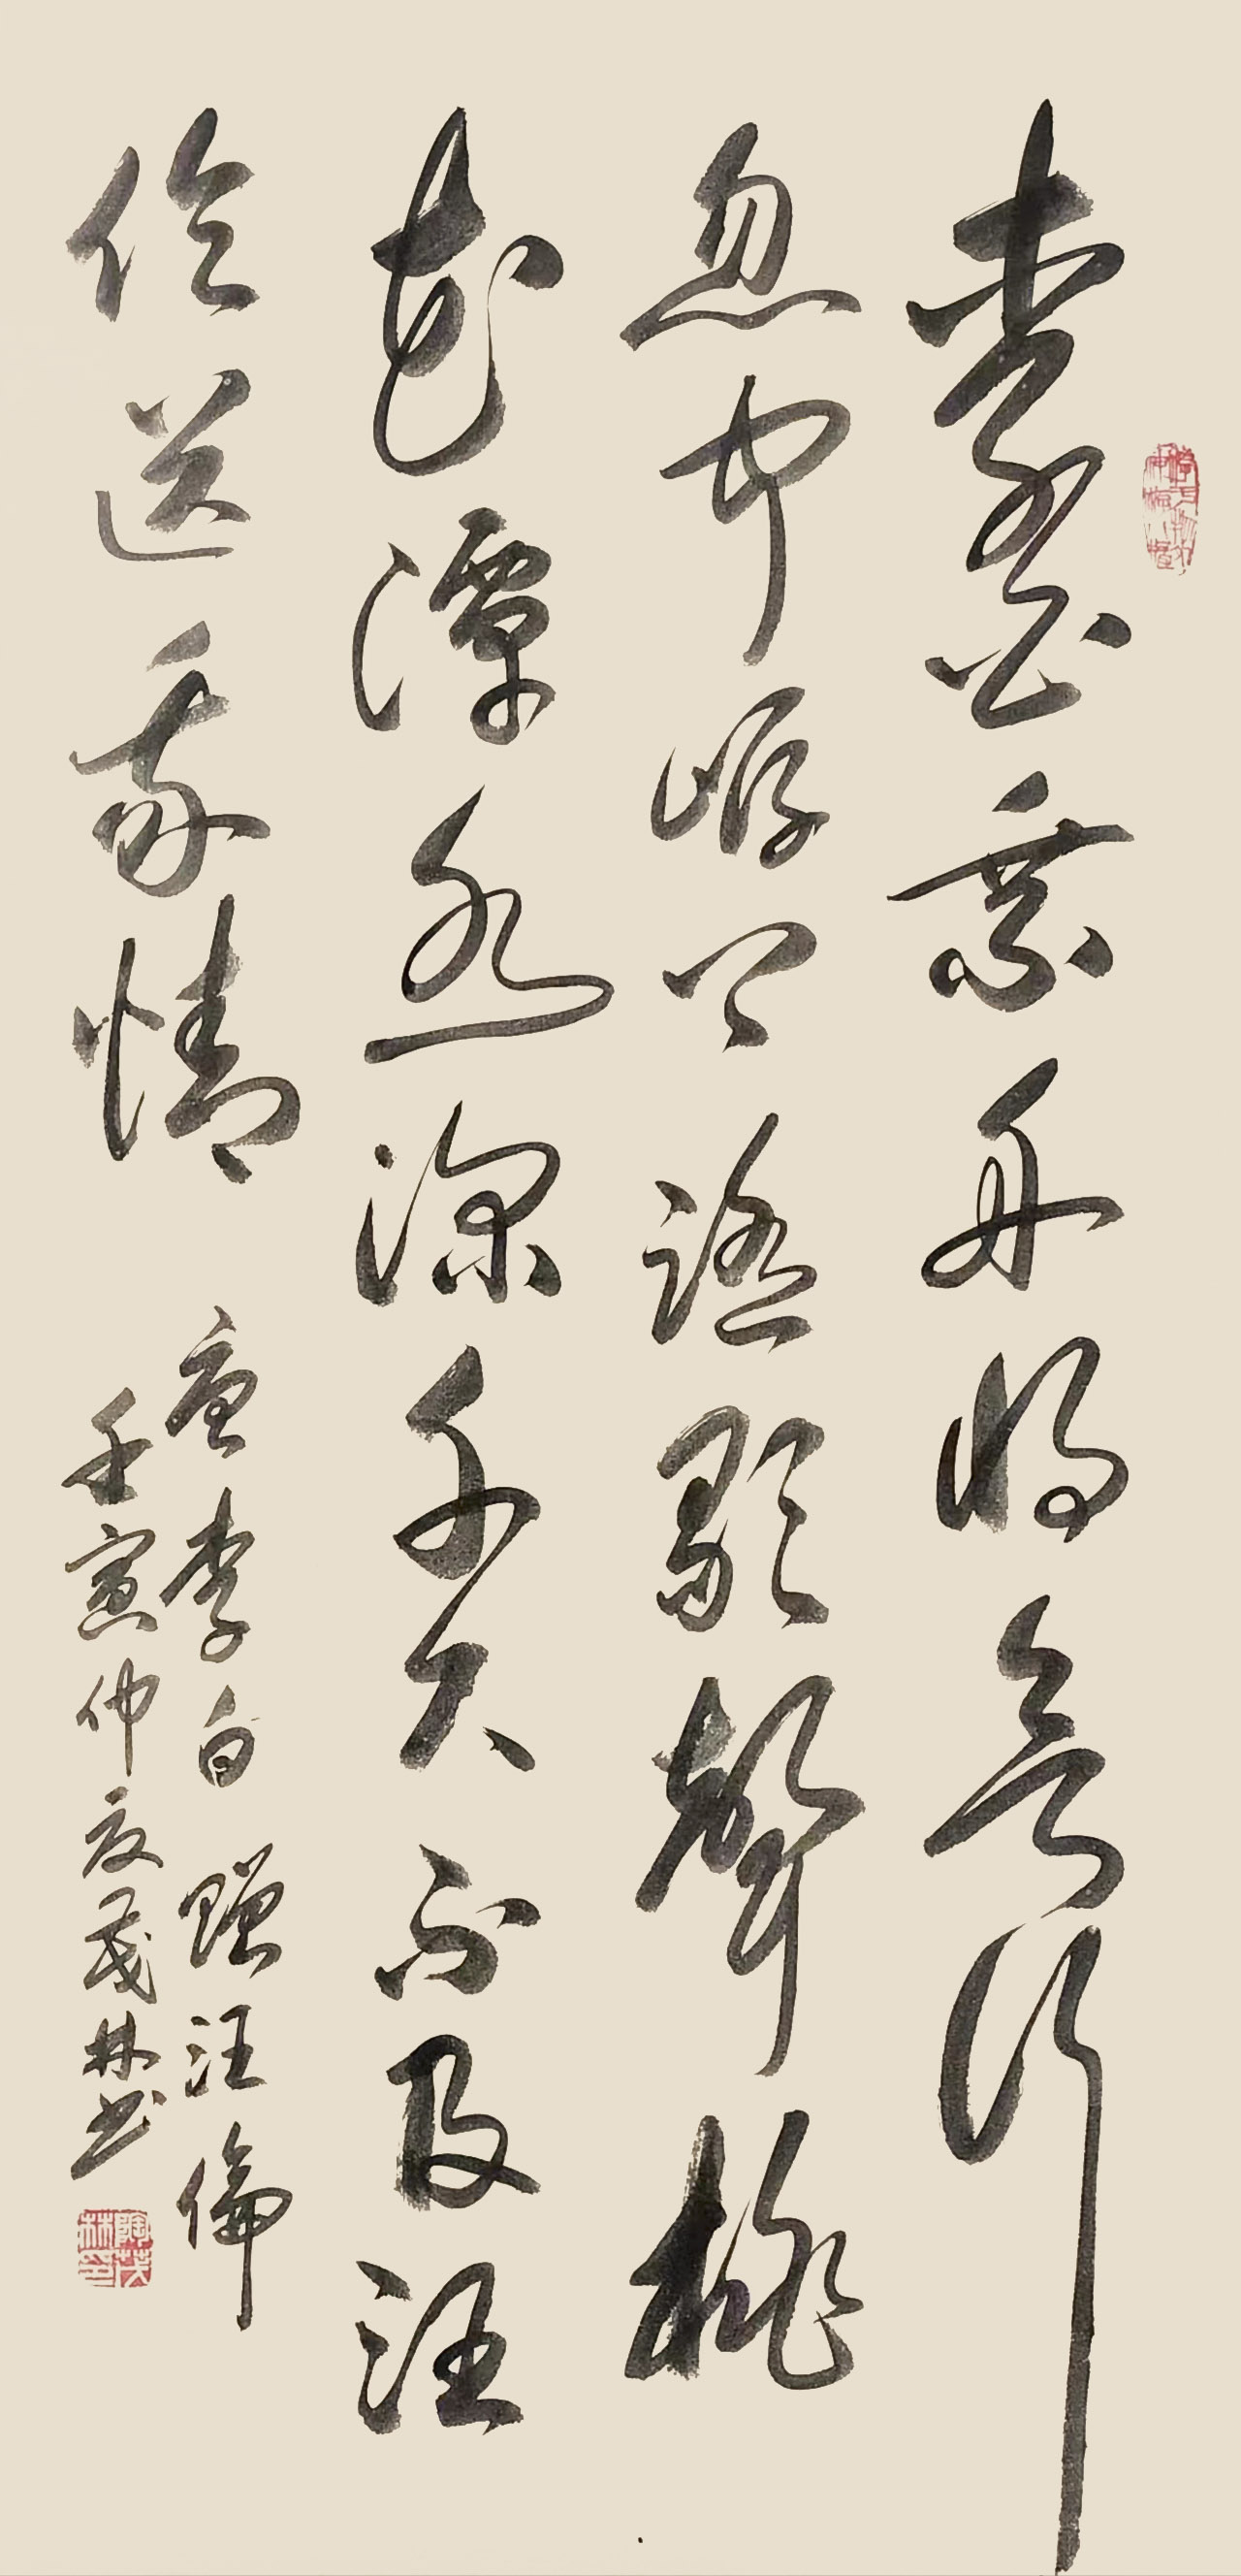 李白乘舟將欲行
忽聞岸上踏歌聲桃
花潭水深千尺不及汪
倫送我情
唐李白贈汪倫
壬寅仲夏茂林書
陶茂林印